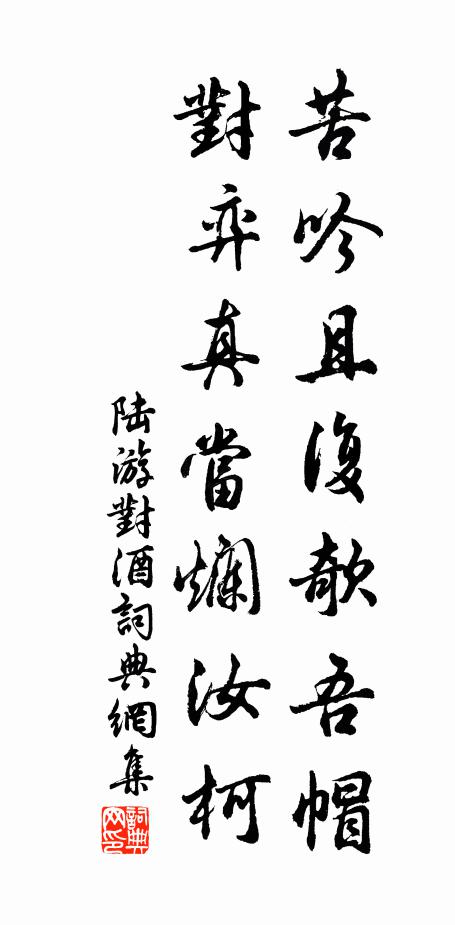 苦吟且復欹吾帽
對弈真當爛汝柯
陆游對酒詞典網集
詞典
网印